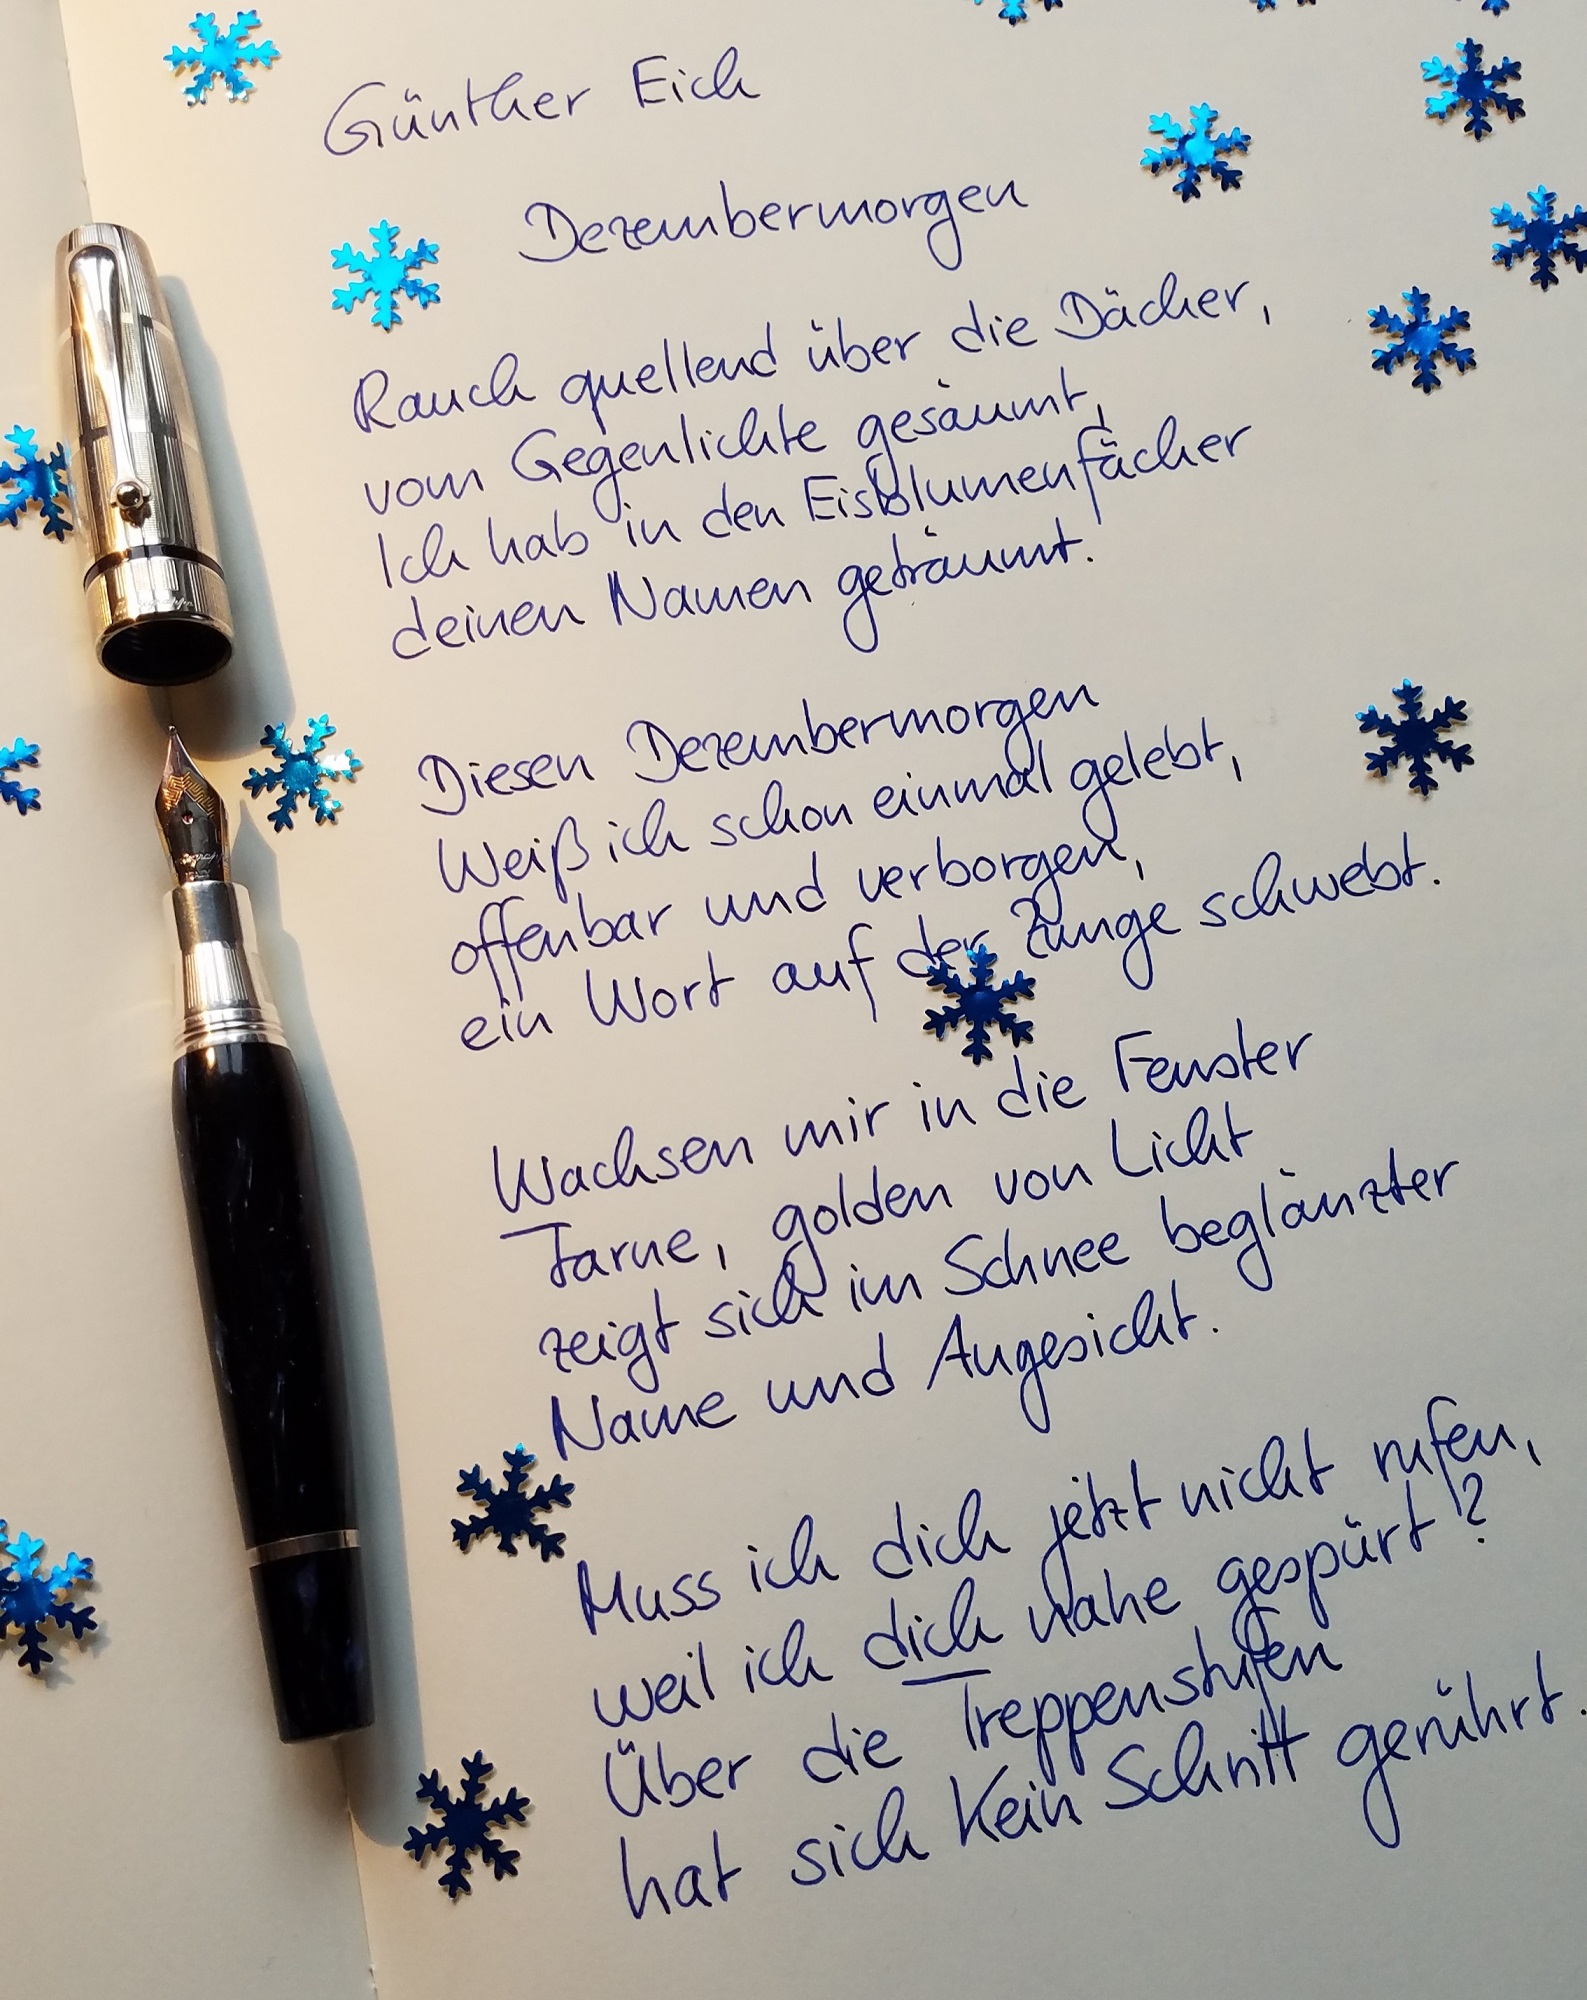 Günther Eich
Dezembermorgen
Rauch quellend über die Dächer,
vom Gegenlichte gesäumt,
Ich hab in den Eisblumenfächer
deinen Namen geträumt.
Diesen Dezembermorgen
Weiß ich schon einmal gelebt,
offenbar und verborgen,
ein Wort auf der Zunge schwebt.
Wachsen mir in die Fenster
Farne, golden von Licht
zeigt sich im Schnee beglänzter
Name und Angesicht.
Muss ich dich jetzt nicht rufen,
weil ich dich nahe gespürt?
Über die Treppenstufen
hat sich kein Schritt gerührt.